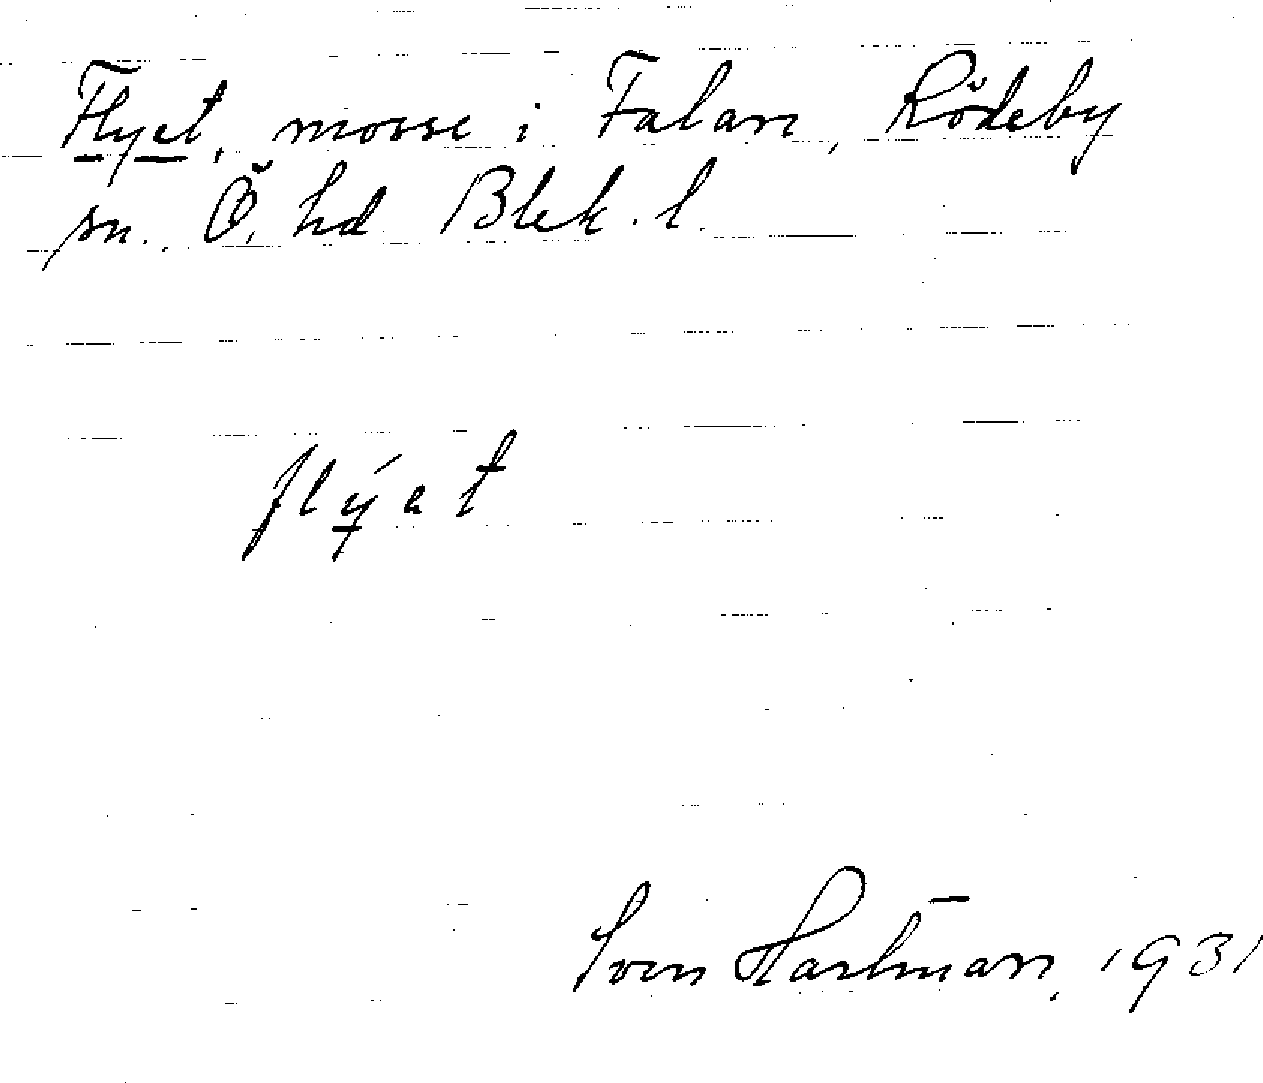 Flyet, mosse i Falan, Rödeby
sn. Ö. hd Blek. l.
flýet
Sven Hartman, 1931